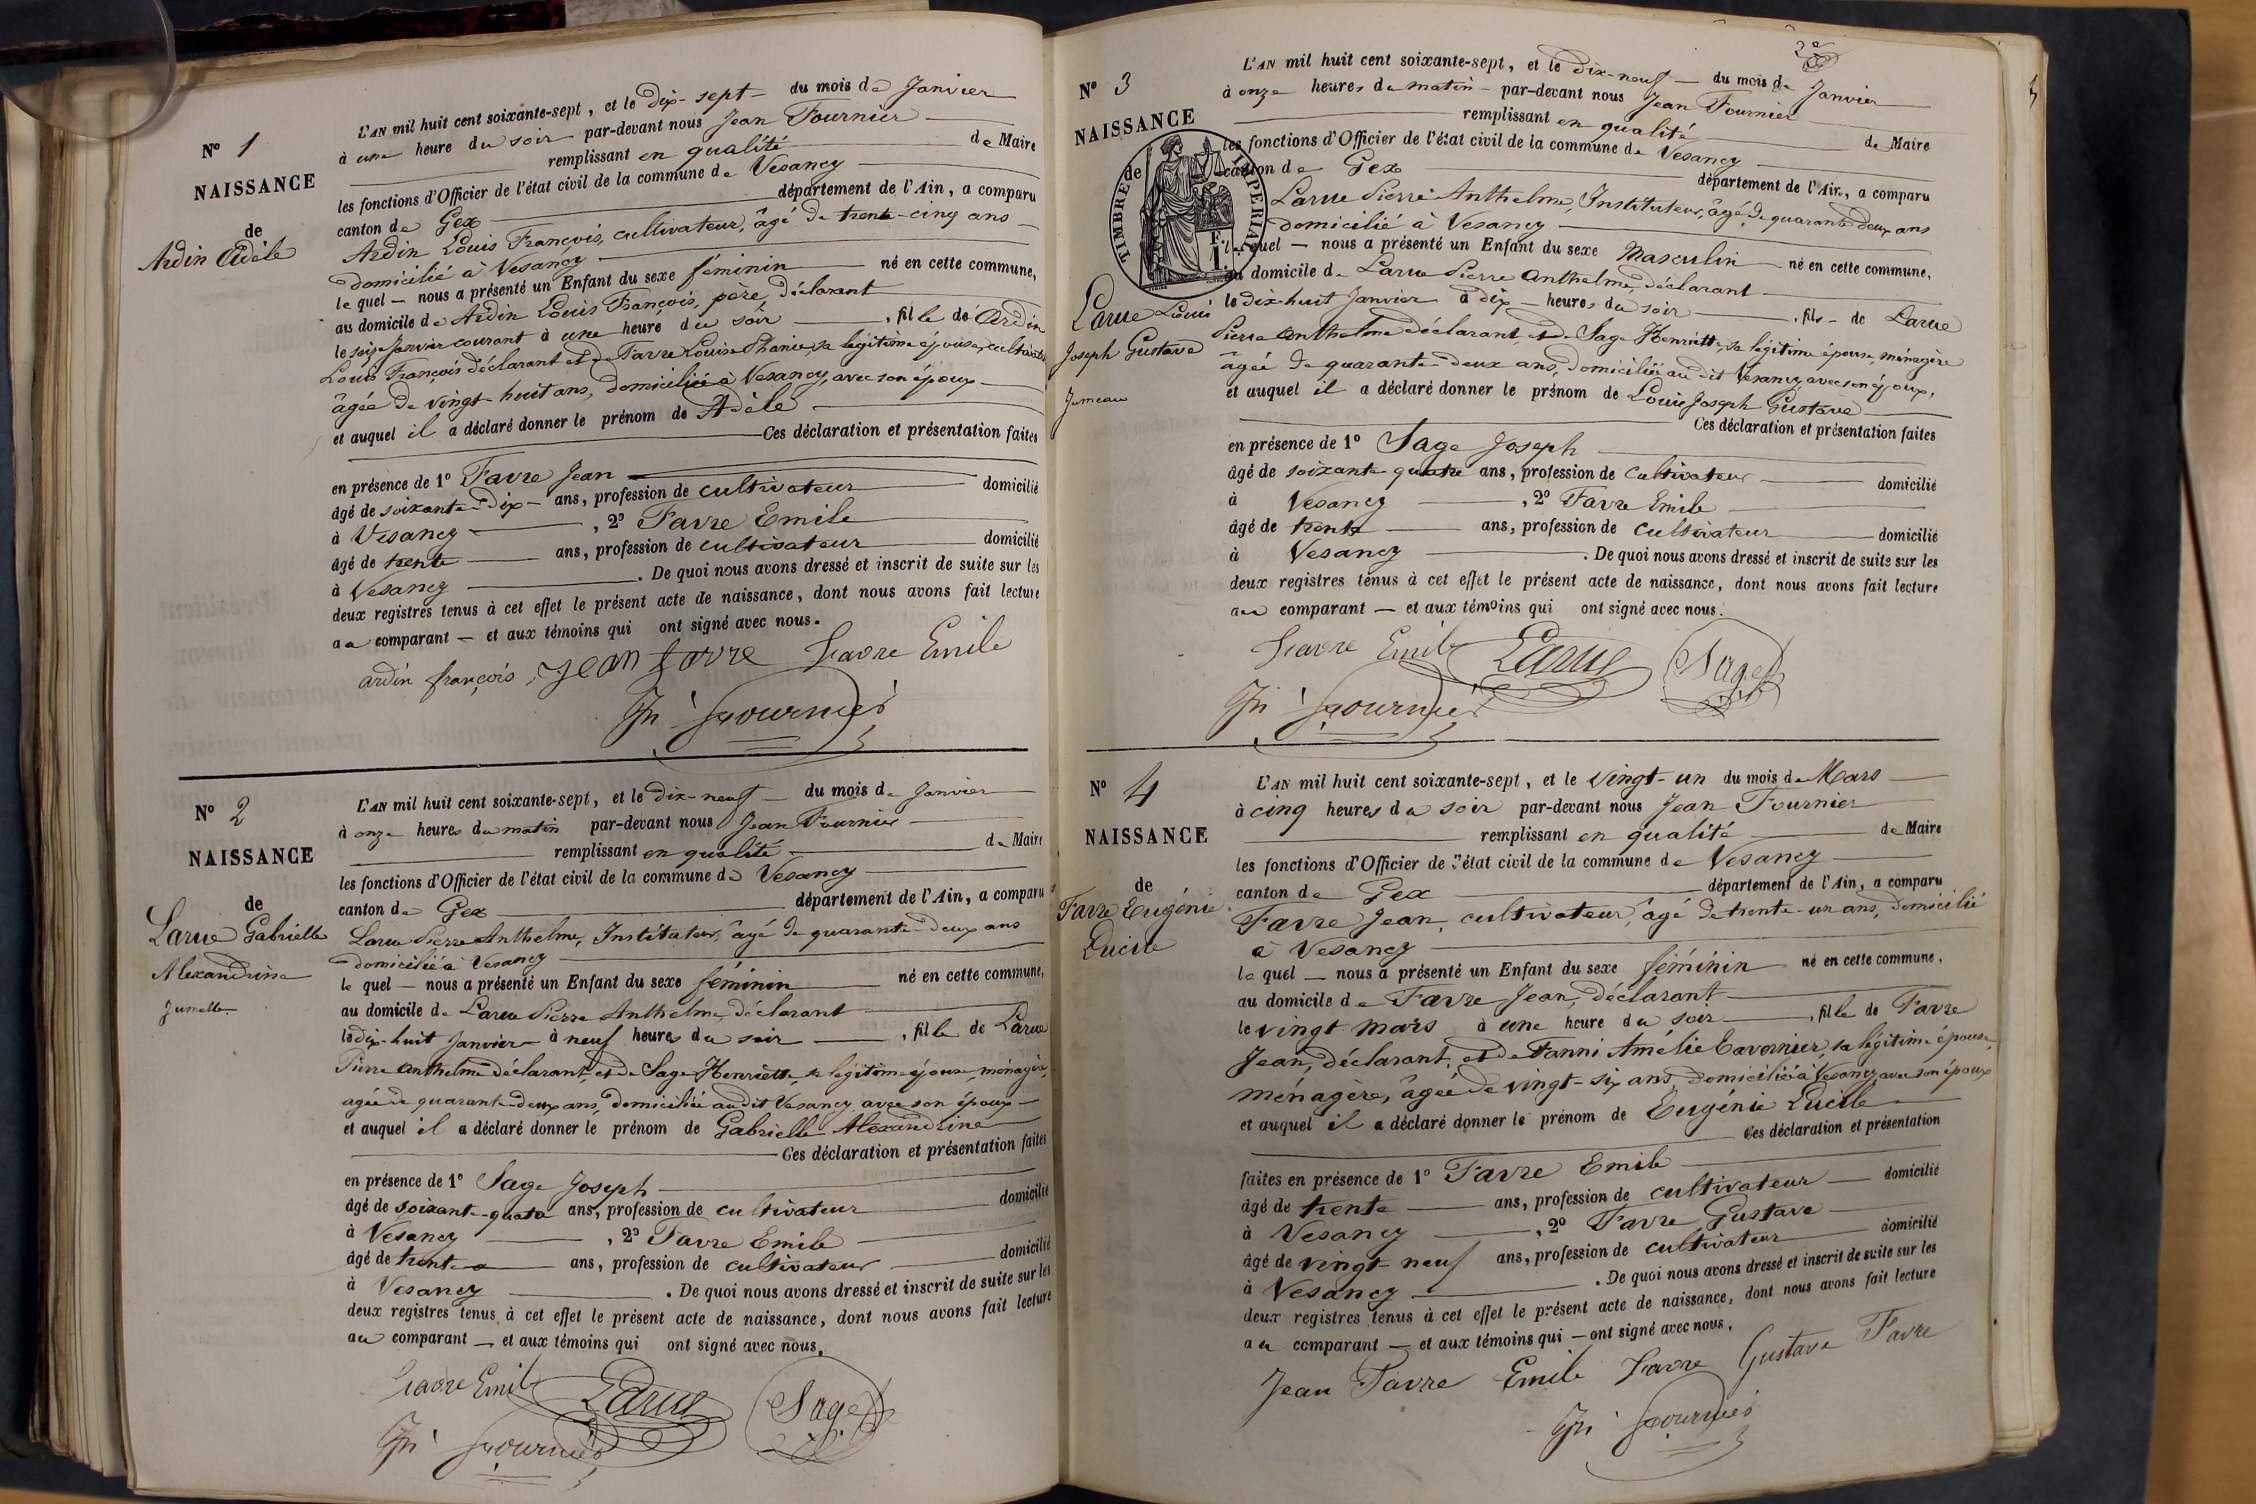 N° 1
NAISSANCE
de
Ardin Adèle
L'AN mil huit cent soixante-sept, et le Dix-sept du mois de Janvier
à une heure du soir par-devant nous Jean Fournier
remplissant en qualité de Maire
les fonctions d'Officier de l'état civil de la commune de Vesancy
canton de Gex département de l'Ain, a comparu
Ardin Louis François, cultivateur, âgé de trente-cinq ans
domicilié à Vesancy
le quel — nous a présenté un Enfant du sexe féminin né en cette commune,
au domicile de Ardin Louis François, père, déclarant
le seize Janvier courant à une heure du soir, fille de Ardin
Louis François déclarant et de Favre Louise Phanie, sa légitime épouse, cultivatrice
âgée de vingt-huit ans, domiciliée à Vesancy, avec son époux
et auquel il a déclaré donner le prénom de Adèle
Ces déclaration et présentation faites
en présence de 1° Favre Jean
âgé de soixante-Dix ans, profession de cultivateur domicilié
à Vesancy, 2° Favre Emile
âgé de trente ans, profession de cultivateur domicilié
à Vesancy. De quoi nous avons dressé et inscrit de suite sur les
deux registres tenus à cet effet le présent acte de naissance, dont nous avons fait lecture
au comparant — et aux témoins qui ont signé avec nous.
ardin françois Jean favre Favre Emile
Jn Fournier
N° 2
NAISSANCE
de
Larue Gabrielle
Alexandrine
Jumelle
L'AN mil huit cent soixante-sept, et le Dix-neuf du mois de Janvier
à onze heures du matin par-devant nous Jean Fournier
remplissant en qualité de Maire
les fonctions d'Officier de l'état civil de la commune de Vesancy
canton de Gex département de l'Ain, a comparu
Larue Pierre Anthelme, Instituteur, âgé de quarante-deux ans
domicilié à Vesancy
le quel — nous a présenté un Enfant du sexe féminin né en cette commune,
au domicile de Larue Pierre Anthelme, déclarant
le dix-huit Janvier à neuf heures du soir, fille de Larue
Pierre Anthelme déclarant, et de Sage Henriette, sa légitime épouse, ménagère,
agée de quarante-deux ans, domiciliée au dit Vesancy avec son époux
et auquel il a déclaré donner le prénom de Gabrielle Alexandrine
Ces déclaration et présentation faites
en présence de 1° Sage Joseph
âgé de soixante-quatre ans, profession de cultivateur domicilié
à Vesancy, 2° Favre Emile
âgé de trente ans, profession de cultivateur domicilié
à Vesancy. De quoi nous avons dressé et inscrit de suite sur les
deux registres tenus à cet effet le présent acte de naissance, dont nous avons fait lecture
au comparant — et aux témoins qui ont signé avec nous.
Favre Emile Larue Sage
Jn Fournier
2e
N° 3
NAISSANCE
de
TIMBRE IMPERIAL
Larue Louis
Joseph Gustave
Jumeau
L'AN mil huit cent soixante-sept, et le Dix-neuf du mois de Janvier
à onze heures du matin par-devant nous Jean Fournier
remplissant en qualité de Maire
les fonctions d'Officier de l'état civil de la commune de Vesancy
canton de Gex département de l'Ain, a comparu
Larue Pierre Anthelme, Instituteur, âgé de quarante-deux ans
domicilié à Vesancy
le quel — nous a présenté un Enfant du sexe Masculin né en cette commune,
au domicile de Larue Pierre Anthelme, déclarant
le dix-huit Janvier à dix heures du soir, fils de Larue
Pierre Anthelme déclarant, et de Sage Henriette, sa légitime épouse, ménagère
âgée de quarante-deux ans, domiciliée au dit Vesancy avec son époux,
et auquel il a déclaré donner le prénom de Louis Joseph Gustave
Ces déclaration et présentation faites
en présence de 1° Sage Joseph
âgé de soixante-quatre ans, profession de cultivateur domicilié
à Vesancy, 2° Favre Emile
âgé de trente ans, profession de cultivateur domicilié
à Vesancy. De quoi nous avons dressé et inscrit de suite sur les
deux registres tenus à cet effet le présent acte de naissance, dont nous avons fait lecture
au comparant — et aux témoins qui ont signé avec nous.
Favre Emile Larue Sage
Jn Fournier
N° 4
NAISSANCE
de
Favre Eugénie
Lucile
L'AN mil huit cent soixante-sept, et le vingt-un du mois de Mars
à cinq heures du soir par-devant nous Jean Fournier
remplissant en qualité de Maire
les fonctions d'Officier de l'état civil de la commune de Vesancy
canton de Gex département de l'Ain, a comparu
Favre Jean, cultivateur, âgé de trente-un ans, domicilié
à Vesancy
le quel — nous a présenté un Enfant du sexe féminin né en cette commune,
au domicile de Favre Jean, déclarant
le vingt mars à une heure du soir, fille de Favre
Jean, déclarant, et de Fanni Amélie Tavernier, sa légitime épouse,
ménagère, âgée de vingt-six ans, domiciliée à Vesancy avec son époux
et auquel il a déclaré donner le prénom de Eugénie Lucile
Ces déclaration et présentation
faites en présence de 1° Favre Emile
âgé de trente ans, profession de cultivateur domicilié
à Vesancy, 2° Favre Gustave
âgé de vingt-neuf ans, profession de cultivateur domicilié
à Vesancy. De quoi nous avons dressé et inscrit de suite sur les
deux registres tenus à cet effet le présent acte de naissance, dont nous avons fait lecture
au comparant — et aux témoins qui — ont signé avec nous.
Jean Favre Emile Favre Gustave Favre
Jn Fournier